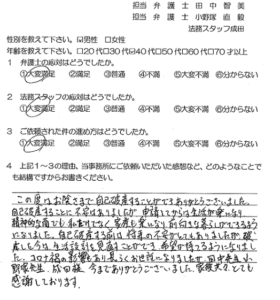 担当 弁護士 田中智美
担当 弁護士 小野塚直毅
法務スタッフ成田
性別を教えて下さい。☑男性 □女性
年齢を教えて下さい。□20代□30代☑40代□50代□60代□70才以上
1 弁護士の応対はどうでしたか。
①大変満足 ②満足 ③普通 ④不満 ⑤大変不満 ⑥分からない
2 法務スタッフの応対はどうでしたか。
①大変満足 ②満足 ③普通 ④不満 ⑤大変不満 ⑥分からない
3 ご依頼された件の進め方はどうでしたか。
①大変満足 ②満足 ③普通 ④不満 ⑤大変不満 ⑥分からない
4 上記1~3の理由、当事務所にご依頼いただいた感想など、どのようなことで
も結構ですからお書きください。
この度はお陰さまで自己破産することができありがとうございました。
自己破産することに不安はありましたが申請してからは生活が楽になり
精神的な面でも
なりました。自己破産する前は将来の不安がとてもありましたが破
産した今は生活設計を見直すことができ希望が持てるようになりまし
た。コロナ禍の影響もあり長らくお世話になりましたが田中先生、小
野塚先生、成田様 今までありがとうございました。家族共々とても
感謝しております。